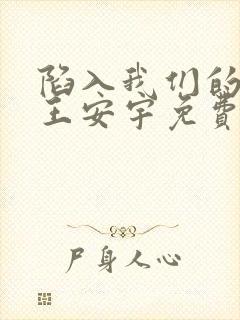 陷入我们的
王安宇免费
尸身人心